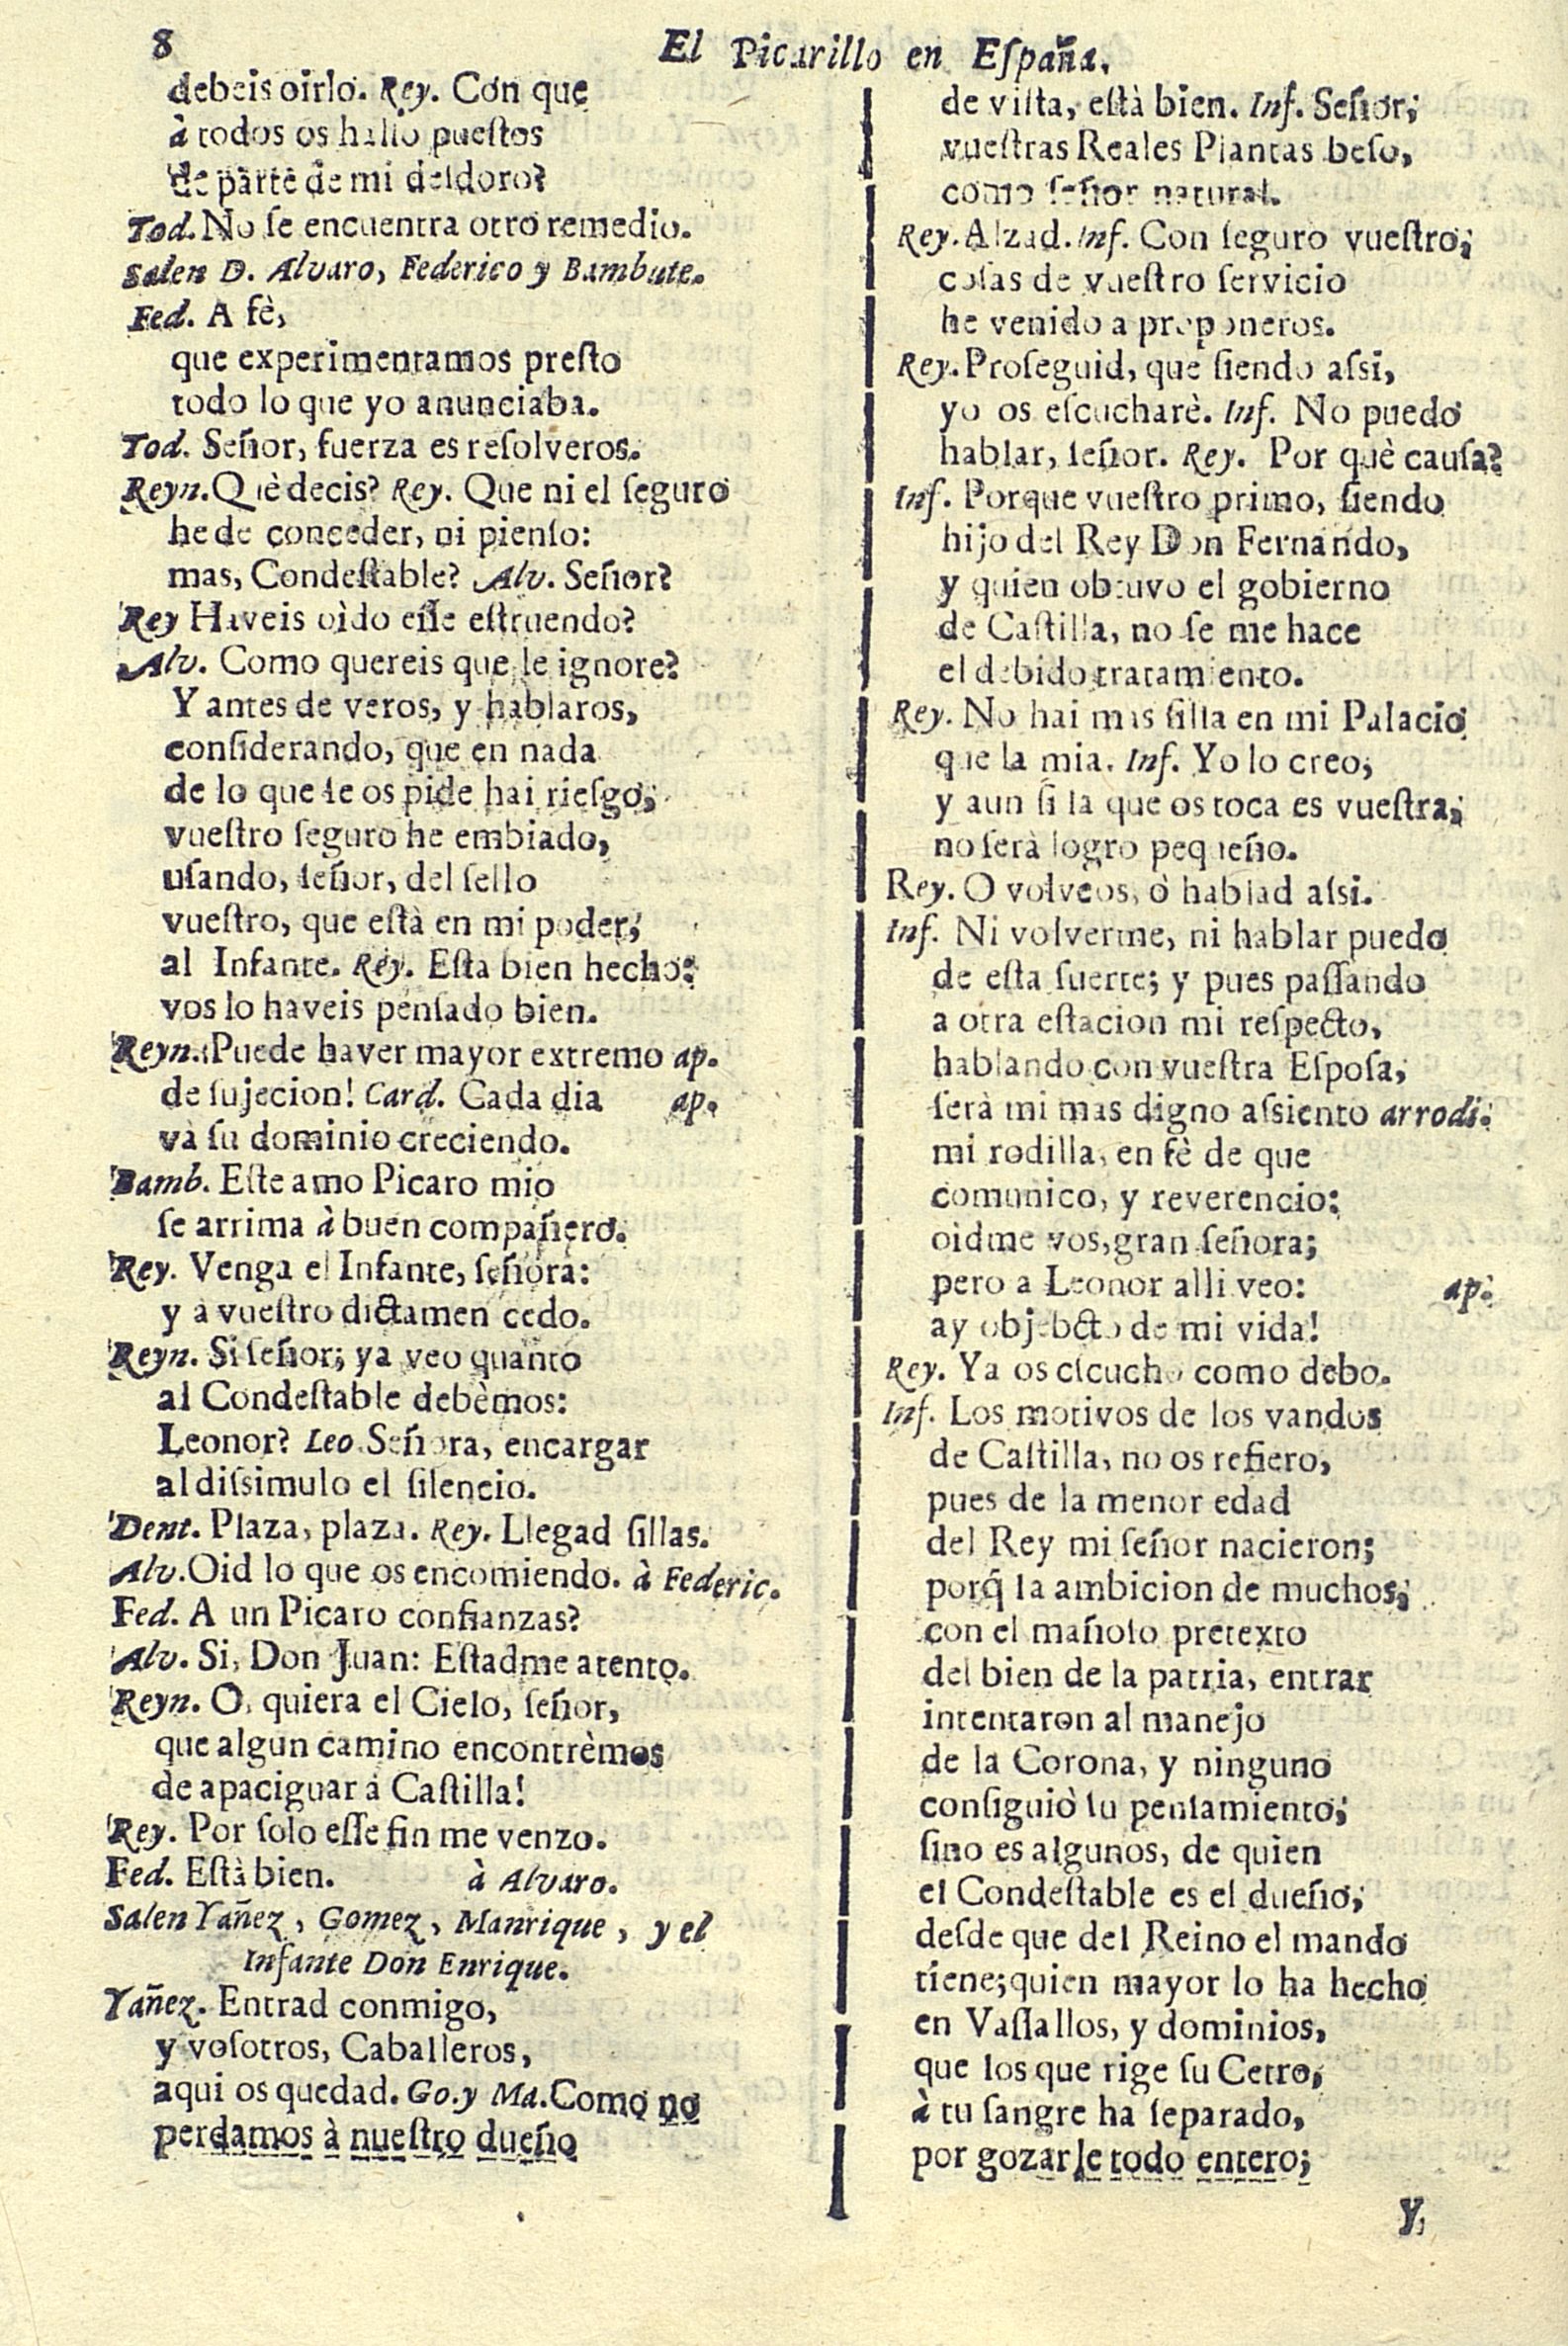 8 El Picarillo en Eſpaña.
debeis oirlo. Rey. Con que
à todos os hallo pueſtos
de parte de mi deſdoro?
Tod. No ſe encuentra otro remedio.
Salen D. Alvaro, Federico y Bambute.
Fed. A fè,
que experimentamos preſto
todo lo que yo anunciaba.
Tod. Señor, fuerza es reſolveros.
Reyn. Què decis? Rey. Que ni el ſeguro
he de conceder, ni pienſo:
mas, Condeſtable? Alv. Señor?
Rey Haveis oìdo eſſe eſtruendo?
Alv. Como quereis que le ignore?
Y antes de veros, y hablaros,
conſiderando, que en nada
de lo que ſe os pide hai rieſgo,
vueſtro ſeguro he embiado,
uſando, ſeñor, del ſello
vueſtro, que eſtà en mi poder,
al Infante. Rey. Eſta bien hecho:
vos lo haveis penſado bien.
Reyn. Puede haver mayor extremo ap.
de ſujecion! Card. Cada dia ap.
và ſu dominio creciendo.
Bamb. Eſte amo Picaro mio
ſe arrima à buen compañero.
Rey. Venga el Infante, ſeñora:
y à vueſtro dictamen cedo.
Reyn. Si ſeñor; ya veo quanto
al Condeſtable debèmos:
Leonor? Leo. Señora, encargar
al diſsimulo el ſilencio.
Dent. Plaza, plaza. Rey. Llegad ſillas.
Alv. Oid lo que os encomiendo. à Federic.
Fed. A un Picaro confianzas?
Alv. Si, Don Juan: Eſtadme atento.
Reyn. O, quiera el Cielo, ſeñor,
que algun camino encontrèmos
de apaciguar à Caſtilla!
Rey. Por ſolo eſſe fin me venzo.
Fed. Eſtà bien. à Alvaro.
Salen Yañez, Gomez, Manrique, y el
Infante Don Enrique.
Yañez. Entrad conmigo,
y voſotros, Caballeros,
aqui os quedad. Go. y Ma. Como no
perdamos à nueſtro dueño
de viſta, eſtà bien. Inf. Señor,
vueſtras Reales Plantas beſo,
como ſeñor natural.
Rey. Alzad. Inf. Con ſeguro vueſtro,
coſas de vueſtro ſervicio
he venido a proponeros.
Rey. Proſeguid, que ſiendo aſsi,
yo os eſcucharè. Inf. No puedo
hablar, ſeñor. Rey. Por què cauſa?
Inf. Porque vueſtro primo, ſiendo
hijo del Rey Don Fernando,
y quien obtuvo el gobierno
de Caſtilla, no ſe me hace
el debido tratamiento.
Rey. No hai mas ſilla en mi Palacio
que la mia. Inf. Yo lo creo,
y aun ſi la que os toca es vueſtra,
no ſerà logro pequeño.
Rey. O volveos, ò hablad aſsi.
Inf. Ni volverme, ni hablar puedo
de eſta ſuerte; y pues paſſando
a otra eſtacion mi reſpecto,
hablando con vueſtra Eſpoſa,
ſerà mi mas digno aſsiento arrodi.
mi rodilla, en fè de que
comunico, y reverencio:
oidme vos, gran ſeñora;
pero a Leonor alli veo: ap.
ay objebcto de mi vida!
Rey. Ya os eſcucho como debo.
Inf. Los motivos de los vandos
de Caſtilla, no os refiero,
pues de la menor edad
del Rey mi ſeñor nacieron;
porq̃ la ambicion de muchos,
con el mañoſo pretexto
del bien de la patria, entrar
intentaron al manejo
de la Corona, y ninguno
conſiguiò ſu penſamiento;
ſino es algunos, de quien
el Condeſtable es el dueño,
deſde que del Reino el mando
tiene; quien mayor lo ha hecho
en Vaſſallos, y dominios,
que los que rige ſu Cetro,
à tu ſangre ha ſeparado,
por gozarle todo entero;
Y,